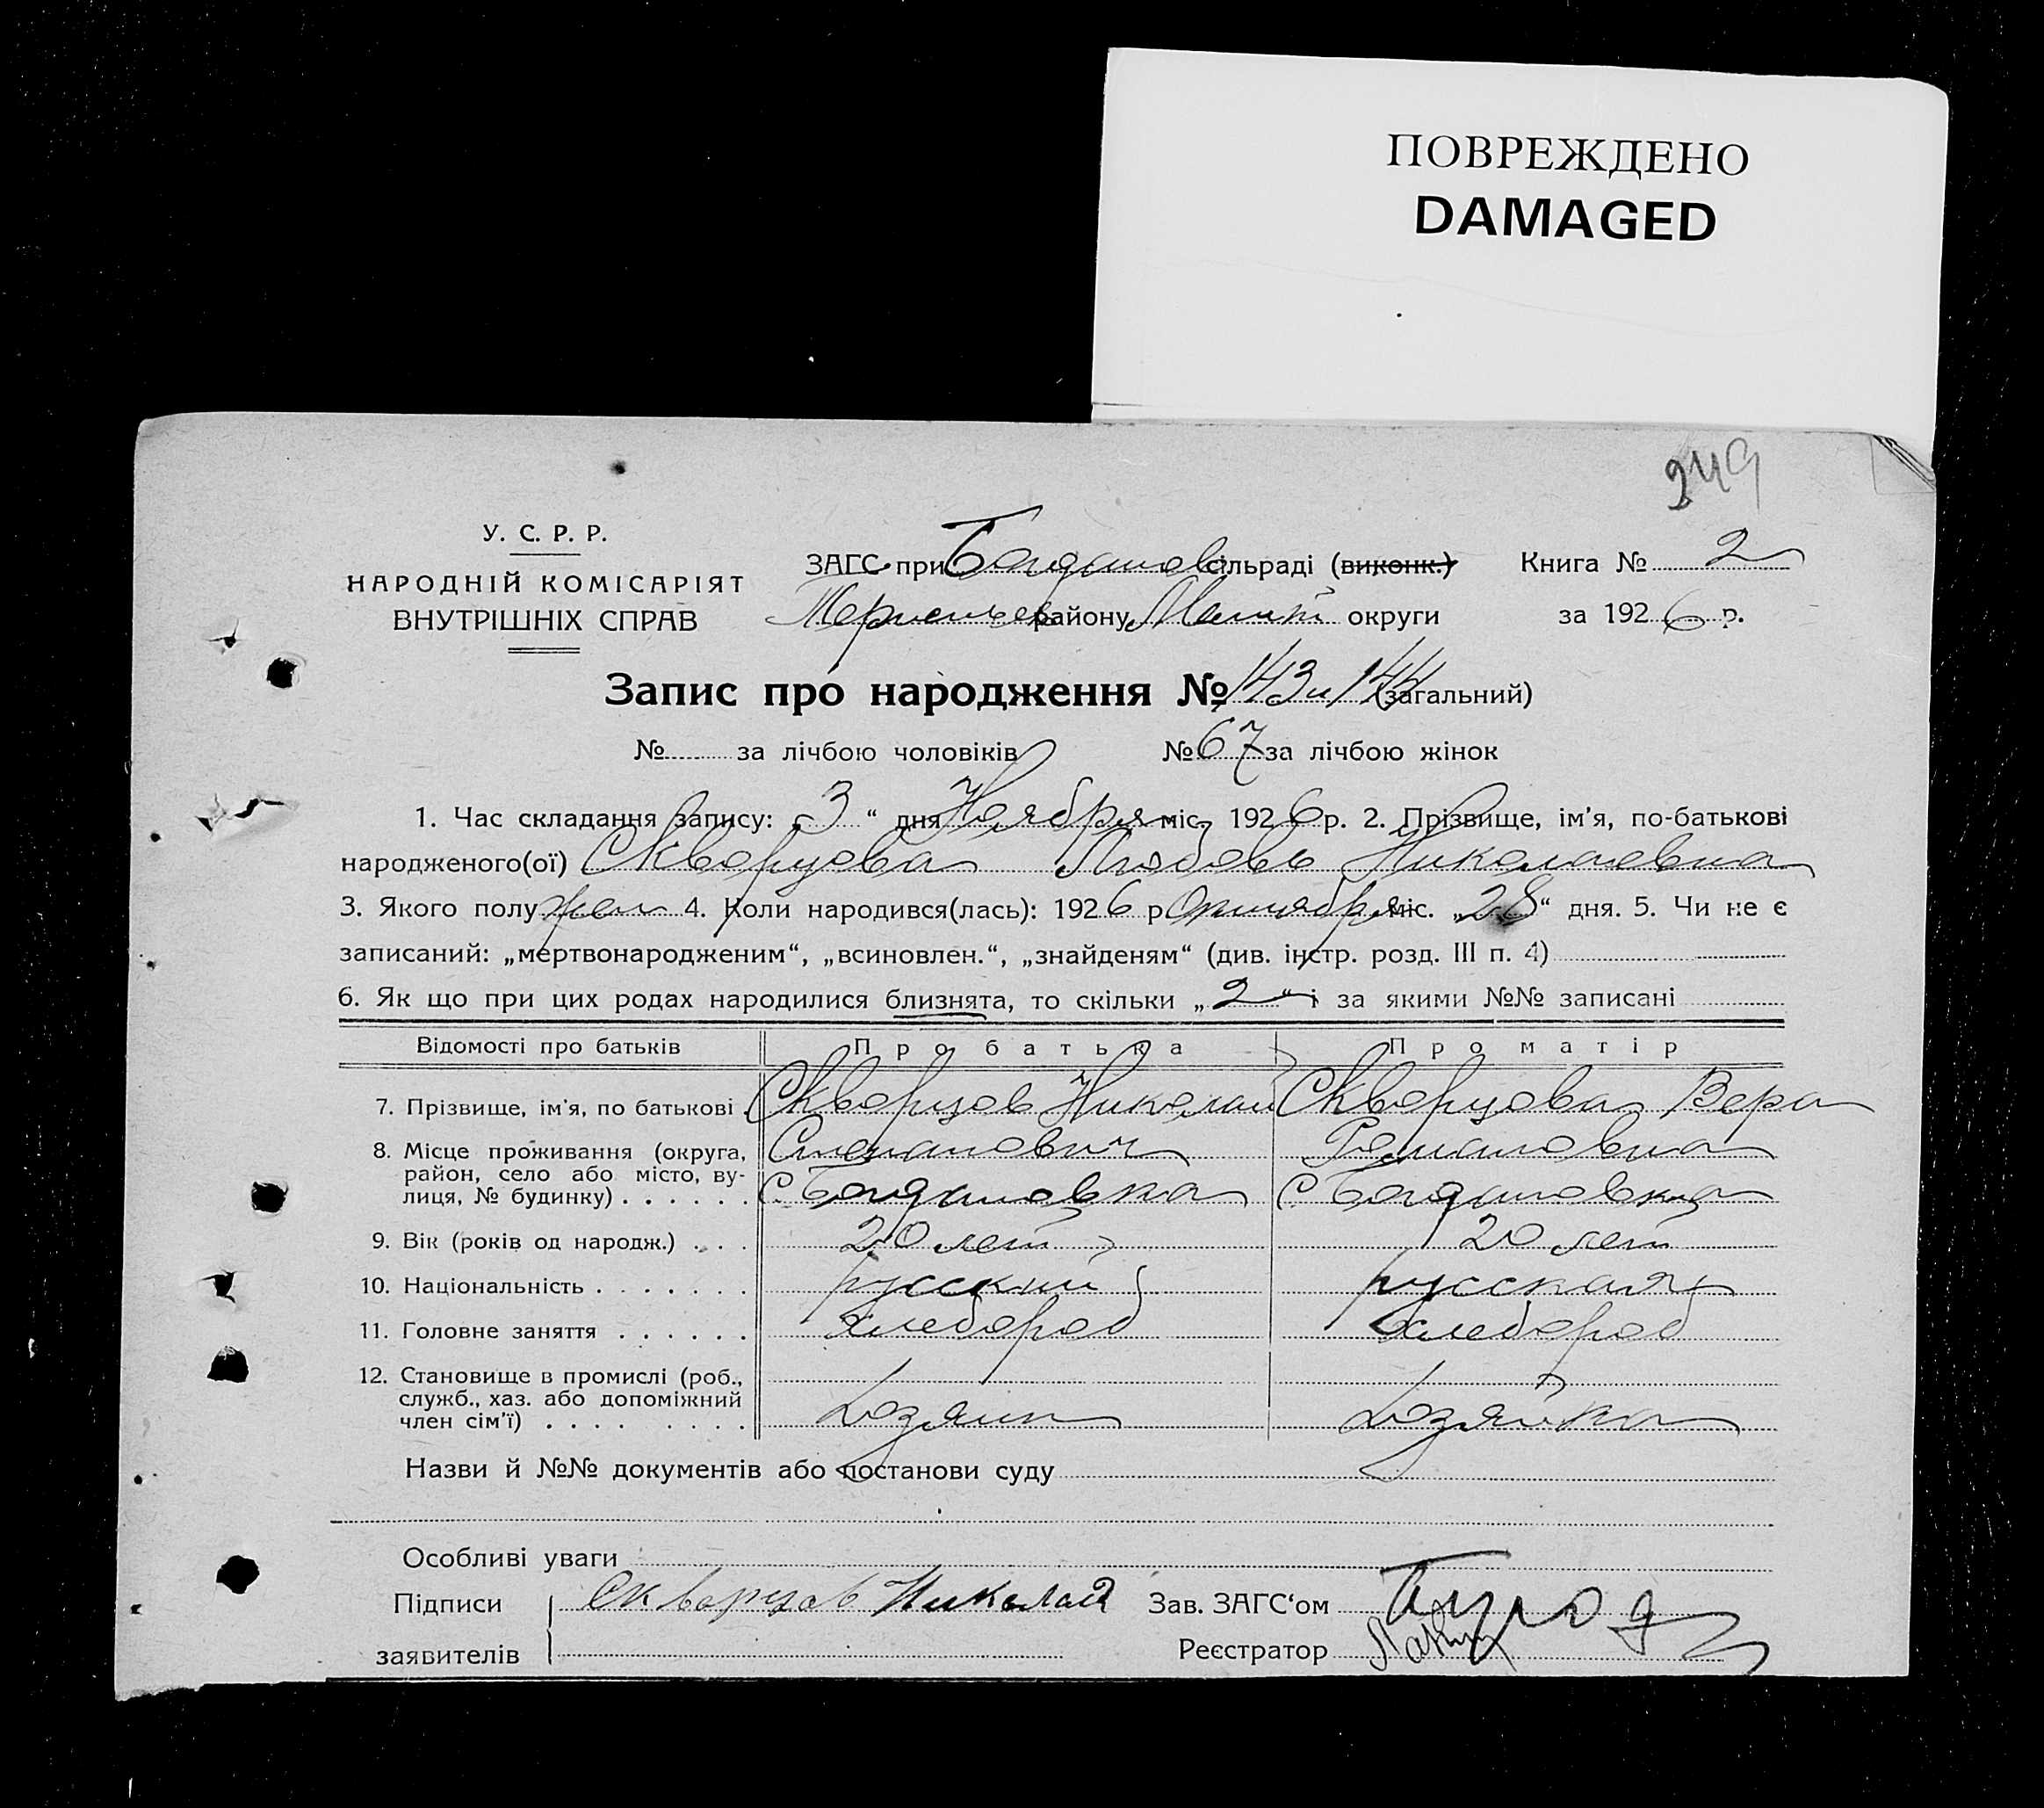 ПОВРЕЖДЕНО
DAMAGED
249
У. С. Р. Р.
НАРОДНІЙ КОМІСАРІЯТ
ВНУТРІШНІХ СПРАВ
ЗАГС при Богданов сільраді (виконк.) Книга № 2
району округи за 1926 р.
Запис про народження № 143 и 144 (загальний)
№ за лічбою чоловіків № 67 за лічбою жінок
1. Час складання запису: „3“ дня Ноября міс. 1926 р. 2. Прізвище, ім'я, по-батькові
народженого(ої) Скворцова Любовь Николаевна
3. Якого полу жен 4. Коли народився(лась): 1926 р. Октября міс. „28“ дня. 5. Чи не є
записаний: „мертвонародженим“, „всиновлен.“, „знайденям“ (див. інстр. розд. III п. 4)
6. Як що при цих родах народилися близнята, то скільки „2“ і за якими №№ записані
Відомості про батьків Про батька Про матір
7. Прізвище, ім'я, по батькові Скворцов Николай Скворцова Вера
Степанович Романовна
8. Місце проживання (округа, район, село або місто, вулиця, № будинку) с. Богдановка с. Богдановка
9. Вік (років од народж.) 20 лет 20 лет
10. Національність русский русская
11. Головне заняття хлебороб хлебороб
12. Становище в промислі (роб., служб., хаз. або допоміжний член сім'ї) хозяин хозяйка
Назви й №№ документів або постанови суду
Особливі уваги
Підписи Скворцов Николай Зав. ЗАГС‘ом
заявителів Реєстратор